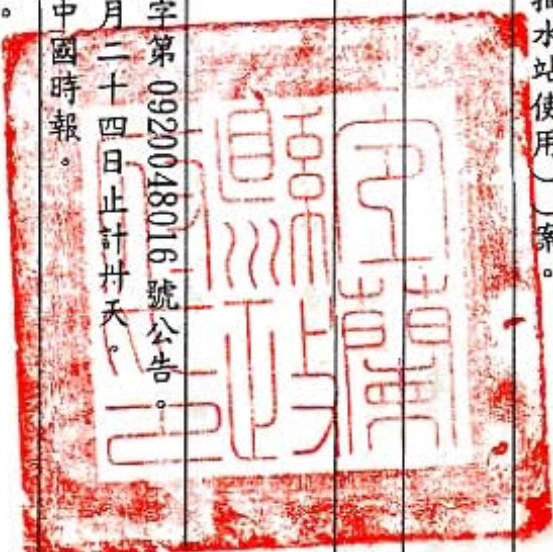 抽水站使用））案。
宜蘭
縣政
府印
字第 0920048016 號公告。
月二十四日止計卅天。
中國時報。
。